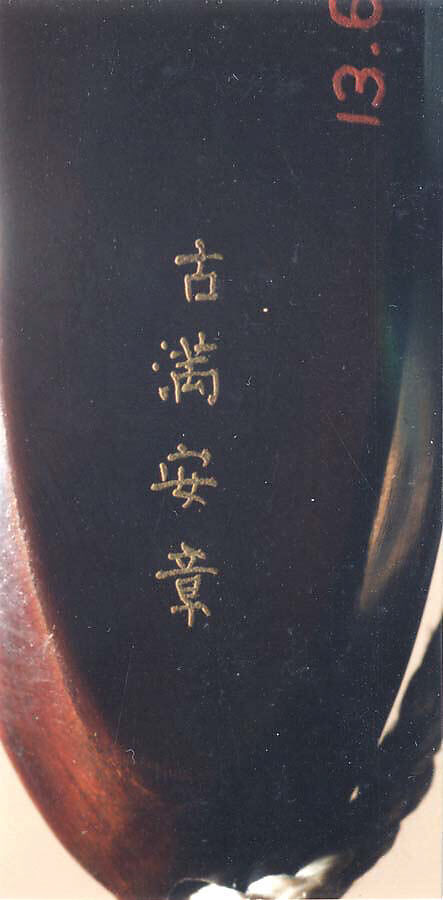 古満安章
13.6